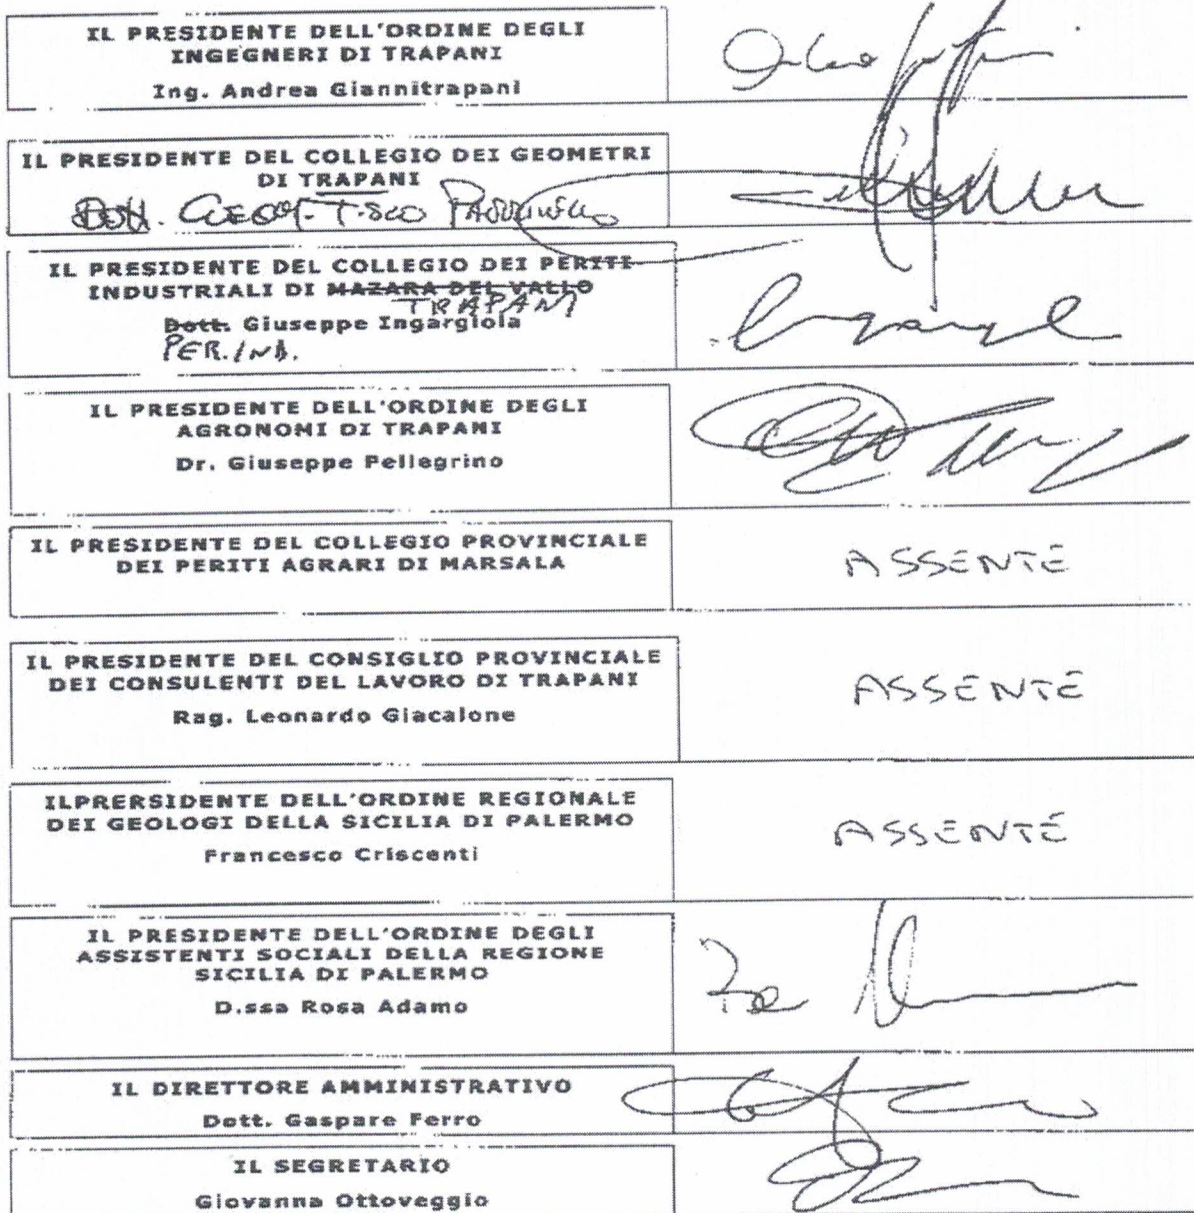 IL PRESIDENTE DELL'ORDINE DEGLI
INGEGNERI DI TRAPANI
Ing. Andrea Giannitrapani
IL PRESIDENTE DEL COLLEGIO DEI GEOMETRI
DI TRAPANI
DOTT. GEOM.
IL PRESIDENTE DEL COLLEGIO DEI PERITI
INDUSTRIALI DI MAZARA DEL VALLO
TRAPANI
Dott. Giuseppe Ingargiola
PER. IND.
IL PRESIDENTE DELL'ORDINE DEGLI
AGRONOMI DI TRAPANI
Dr. Giuseppe Pellegrino
IL PRESIDENTE DEL COLLEGIO PROVINCIALE
DEI PERITI AGRARI DI MARSALA
ASSENTE
IL PRESIDENTE DEL CONSIGLIO PROVINCIALE
DEI CONSULENTI DEL LAVORO DI TRAPANI
Rag. Leonardo Giacalone
ASSENTE
ILPRERSIDENTE DELL'ORDINE REGIONALE
DEI GEOLOGI DELLA SICILIA DI PALERMO
Francesco Criscenti
ASSENTE
IL PRESIDENTE DELL'ORDINE DEGLI
ASSISTENTI SOCIALI DELLA REGIONE
SICILIA DI PALERMO
D.ssa Rosa Adamo
IL DIRETTORE AMMINISTRATIVO
Dott. Gaspare Ferro
IL SEGRETARIO
Giovanna Ottoveggio